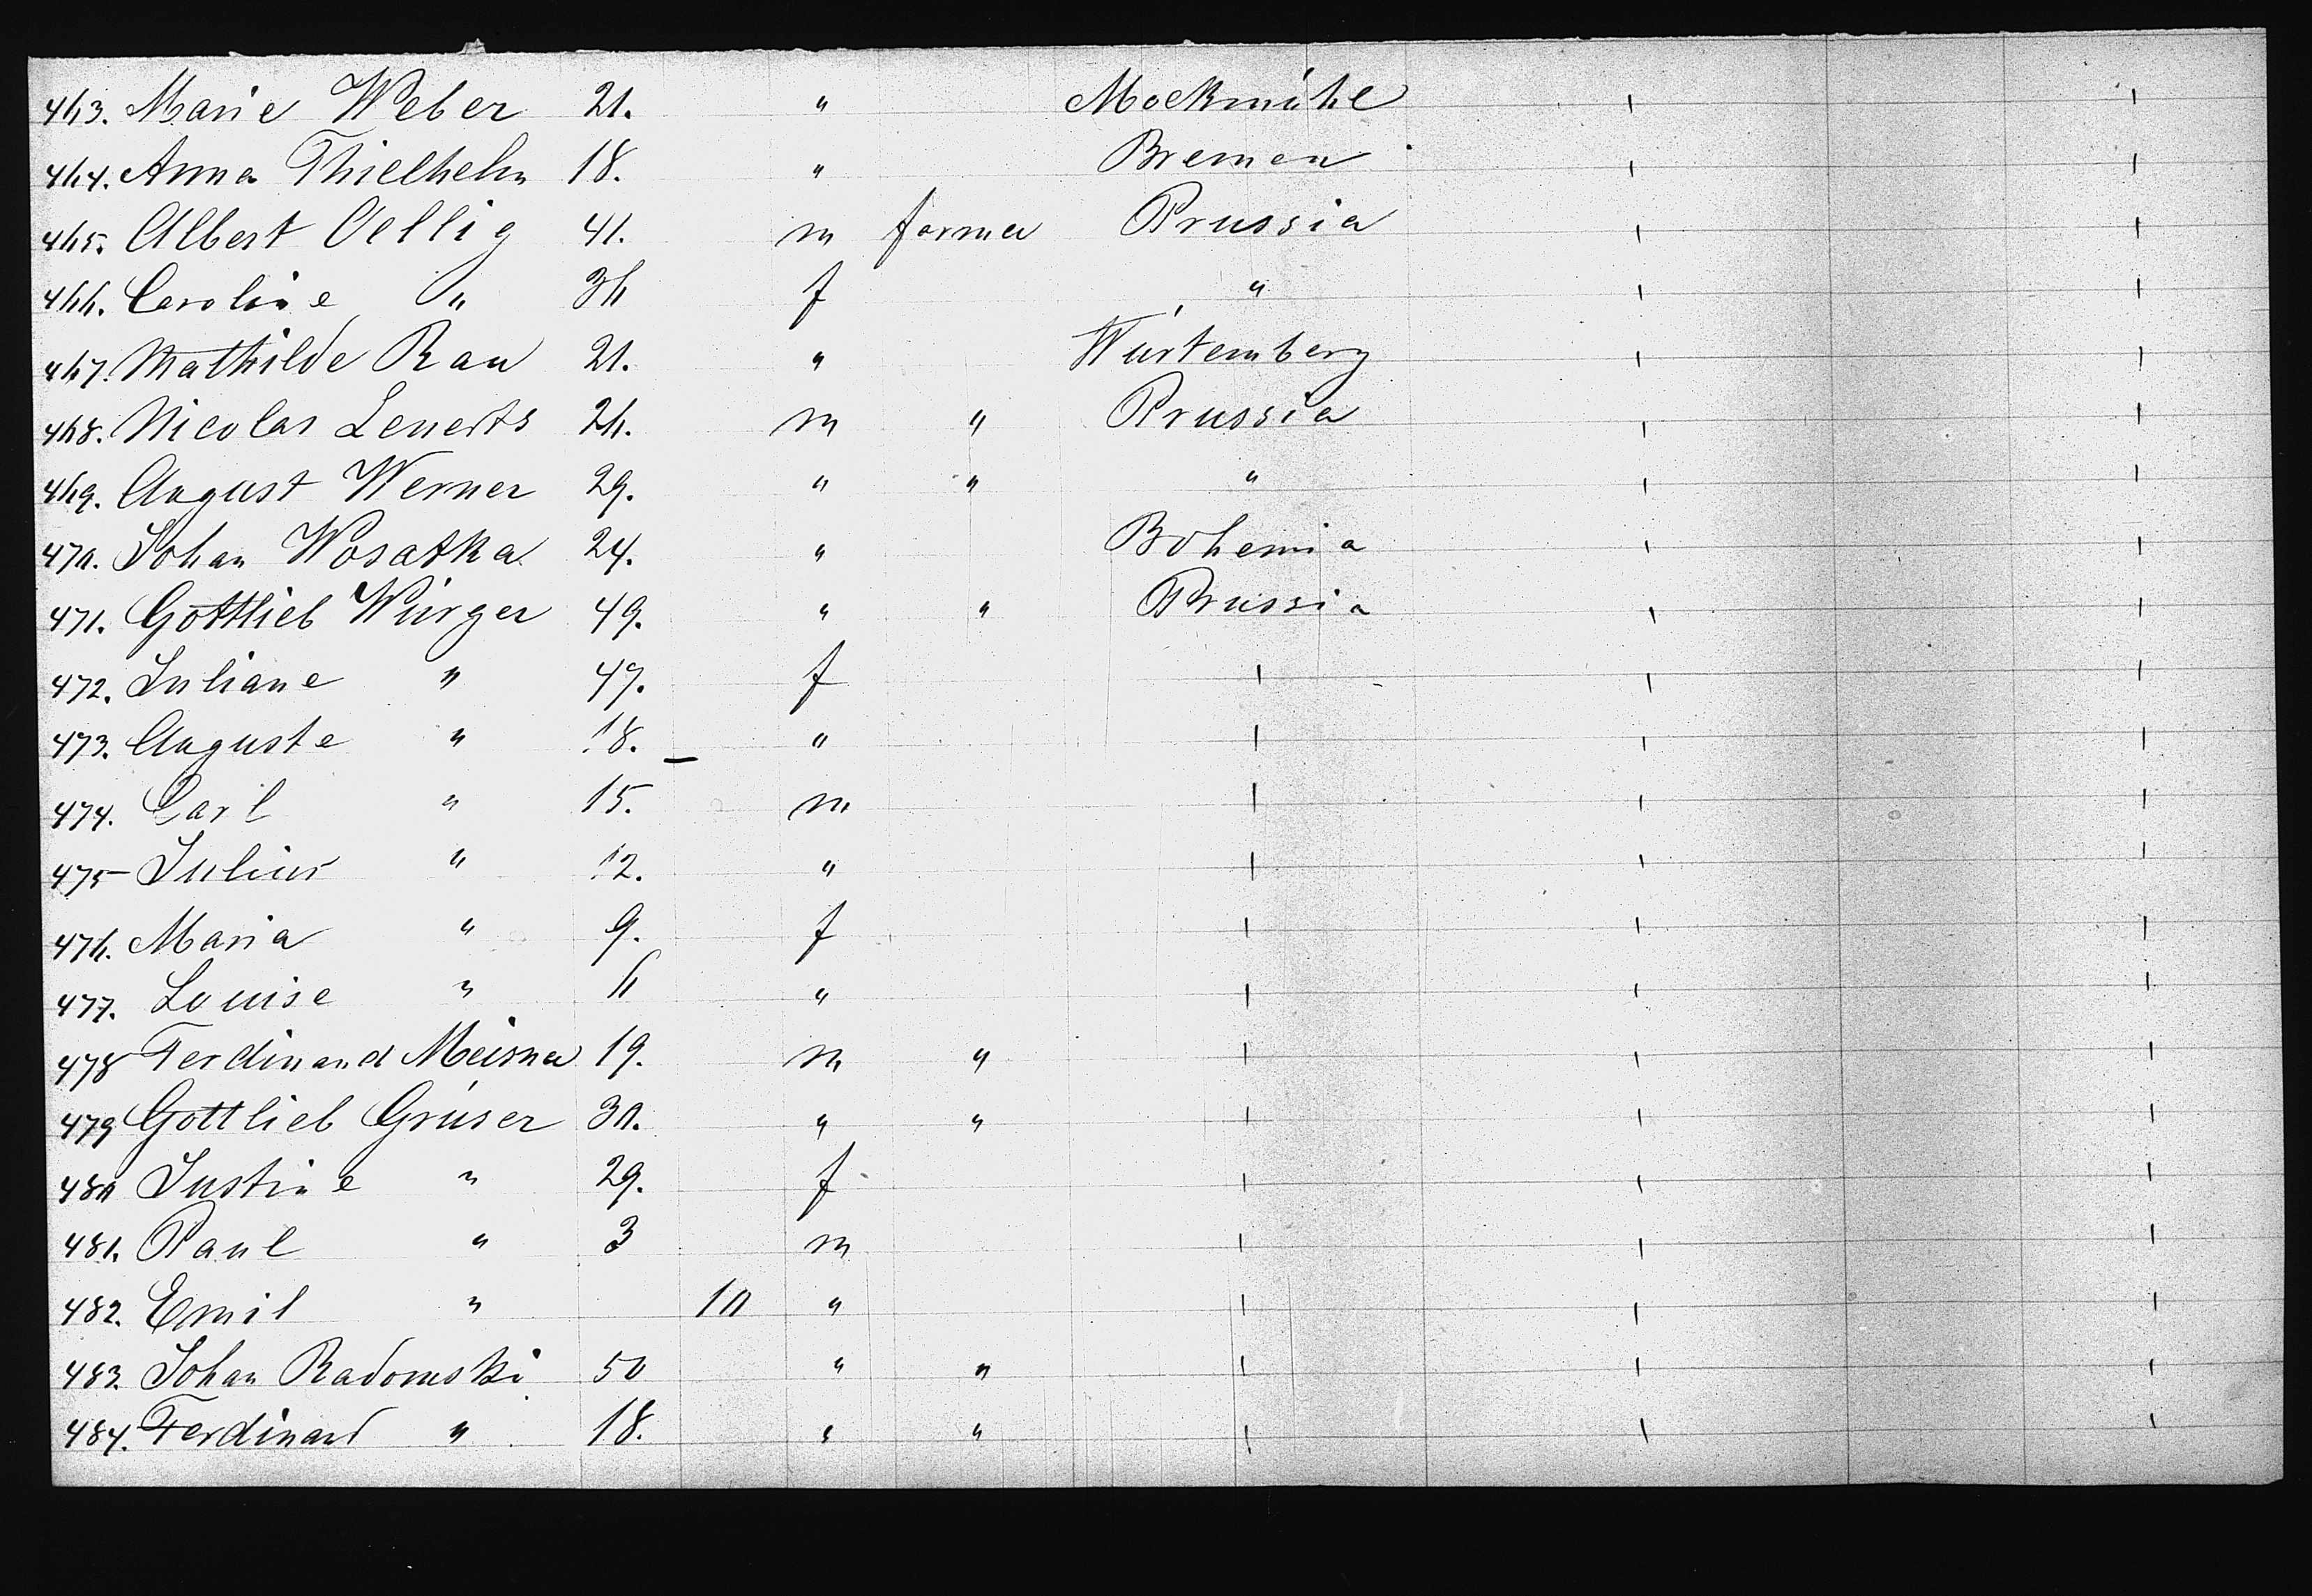 463. Marie Weber 21. " Mockmühl
464. Anna Thielhelm 18. " Bremen
465. Albert Oellig 41. m farmer Prussia
466. Caroline " 36 f "
467. Mathilde Rau 21. " Würtemberg
468. Nicolas Lenerts 26. m " Prussia
469. August Werner 29. " " "
470. Johan Wosatka 24. " Bohemia
471. Gottlieb Würger 49. " " Prussia
472. Juliane " 47. f
473. Auguste " 18. "
474. Carl " 15. m
475 Julius " 12. "
476. Maria " 9. f
477. Louise " 6 "
478 Ferdinand Meisner 19. m "
479 Gottlieb Grüser 30. " "
480 Justine " 29. f
481. Paul " 3 m
482. Emil " 10 "
483. Johan Radomski 50 " "
484. Ferdinand " 18. " "